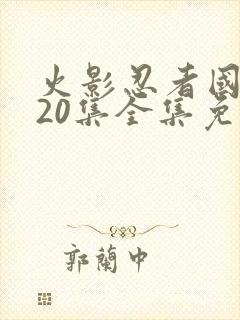 火影忍者國
20集全集免
郭蘭中